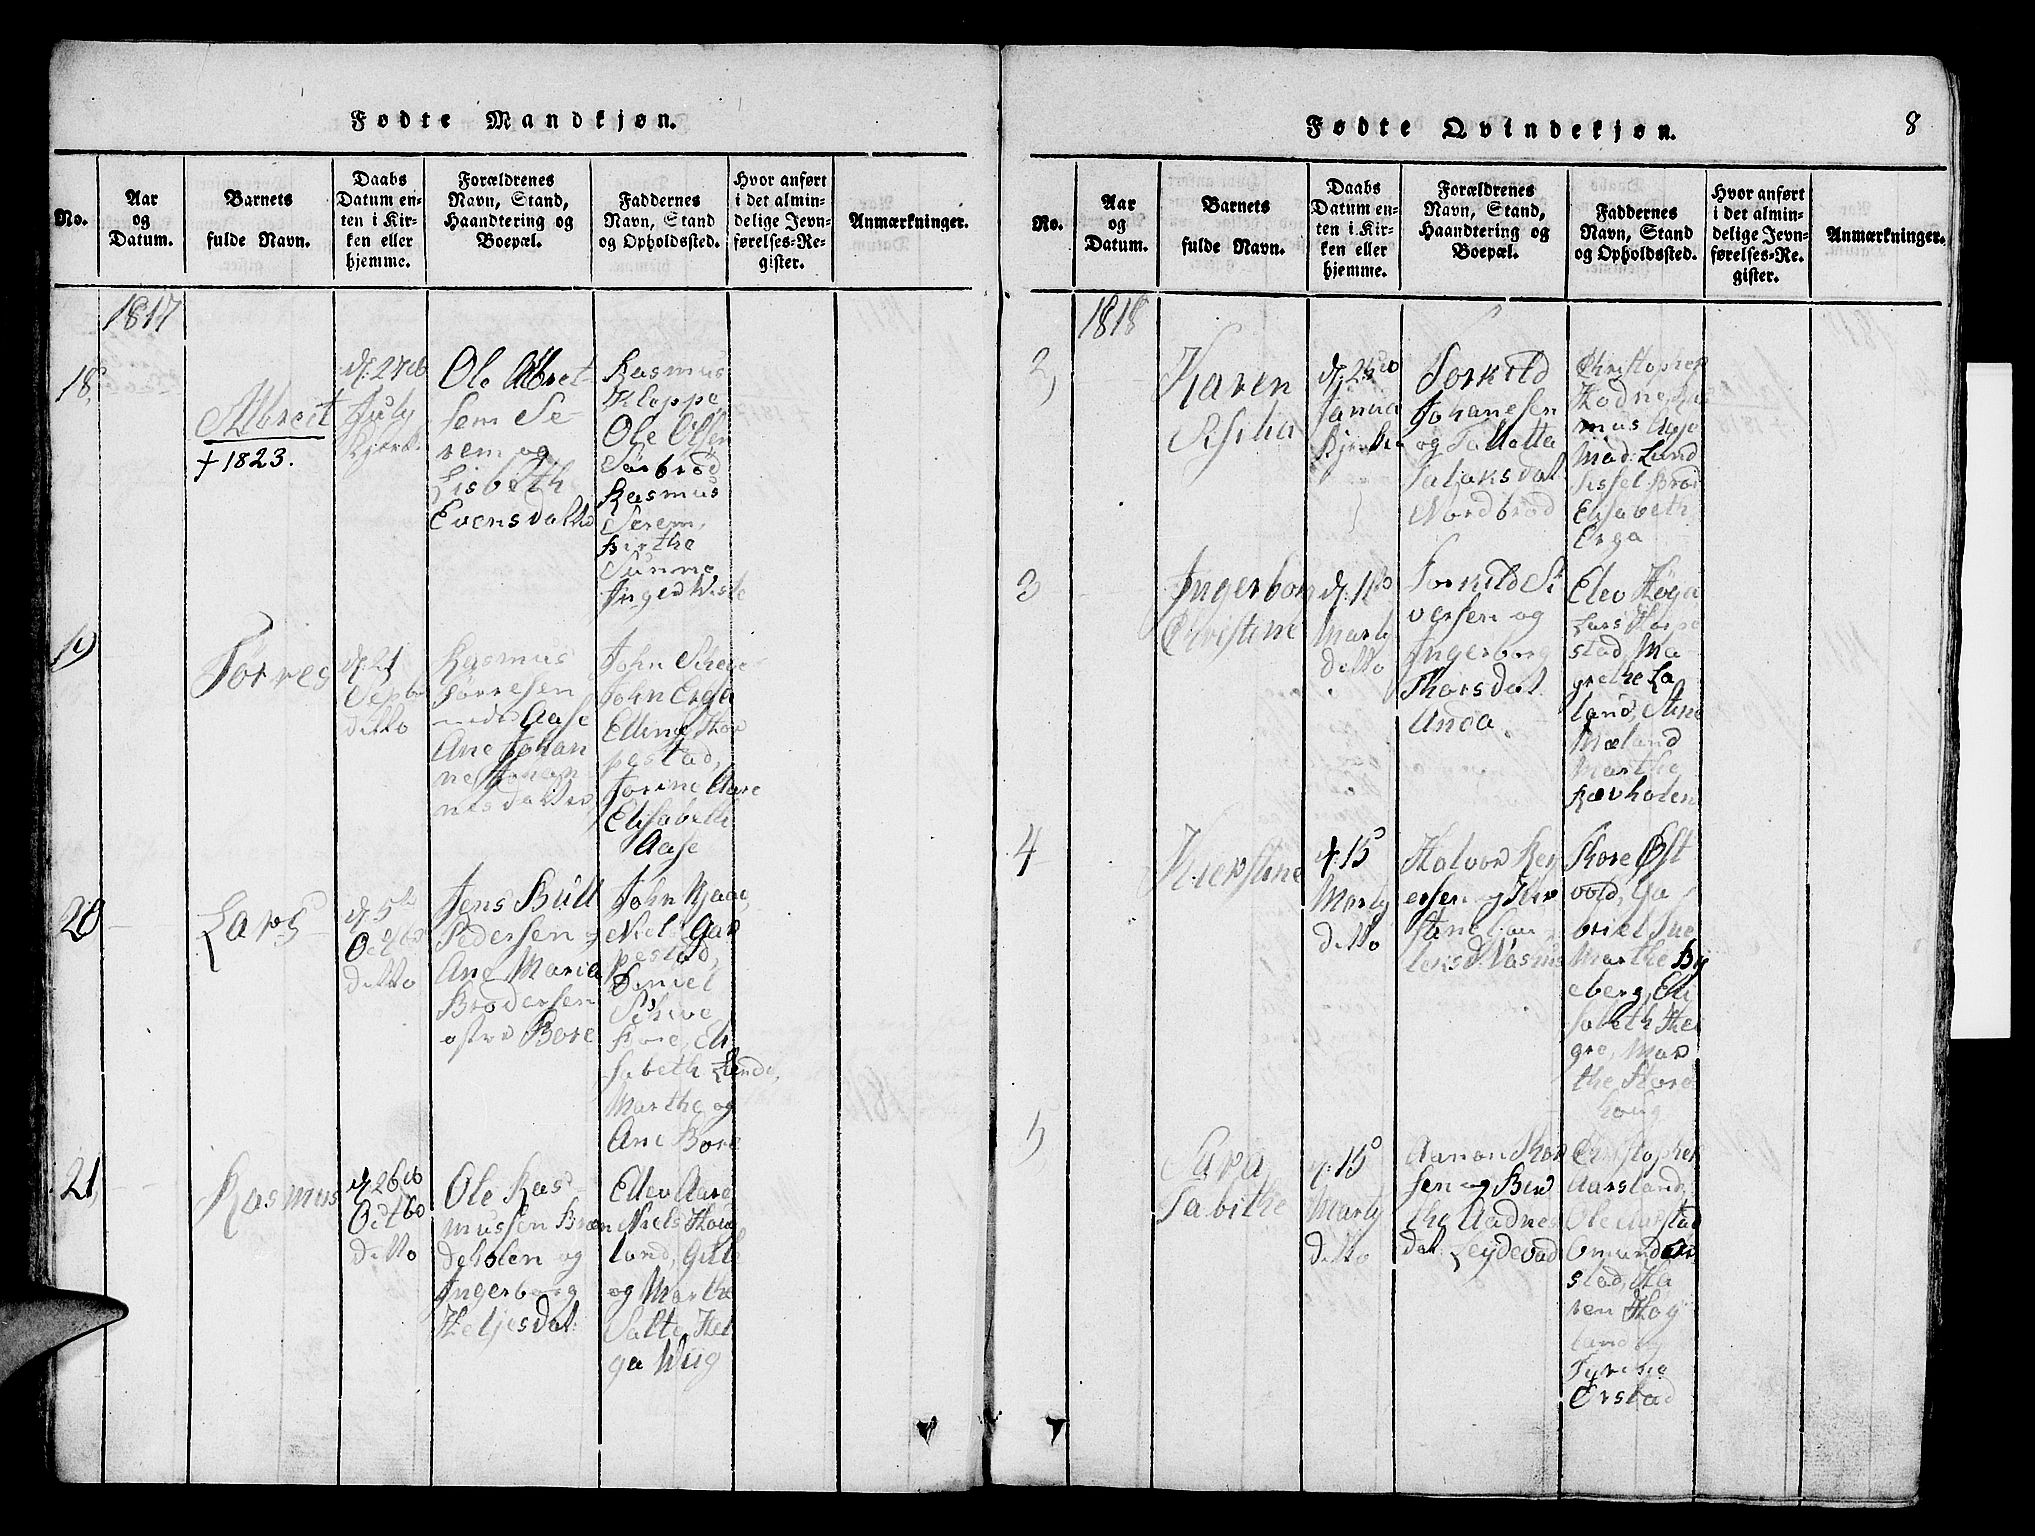 Fødte Mandkjøn.
No.
Aar
og
Datum.
Barnets
fulde Navn.
Daabs
Datum en-
ten i Kir-
ken eller
hjemme.
Forældrenes
Navn, Stand,
Haandtering og
Boepæl.
Faddernes
Navn, Stand
og Opholdssted.
Hvor anført
i det almin-
delige Jevn-
førelses-Re-
gister.
Anmærkninger.
1817
18,
Albrect
† 1823.
d. 27
July
Ole Albret-
sem Se-
rem og
Lisbeth
Evensdatter
Rasmus
Kloppe
Ole Olsen
Sørbrød
Rasmus
Serem,
Birthe
Sunme
Inger Wiste
19
Tørres
d. 21
Sepbr
ditto
Rasmus
Tørresen
Aase
Ane Johan
ne Johan
nesdatter
John Scheie
John Erga
Ellene Hor
pestad,
Jorine Aare
Elisabeth
Aase
20
Lars
d. 5
Octbr
ditto
Jens Bull
Pedersen og
Ane Maria
Brodersen
østre Bore
John Kjaae,
Niels Gar
pestad,
Daniel
Scheie
Bore, Eli
sabeth Lende,
Marthe og
Ane Bore
21,
Rasmus
d. 26
Octbr
ditto
Ole Ras-
mussen Bræn
deholen og
Ingerborg
Heljesdat:
Ellev Aare
Niels Hou
land,
og Marthe
Salte, Hel
ga Wiig
Fødte Qvindekjøn.
8
No.
Aar
og
Datum.
Barnets
fulde Navn.
Daabs
Datum en-
ten i Kir-
ken eller
hjemme.
Forældrenes
Navn, Stand,
Haandtering og
Boepæl.
Faddernes
Navn, Stand
og Opholdssted.
Hvor anført
i det almin-
delige Jevn-
førelses-Re-
gister.
Anmærkninger.
1818
2,
Karen
Sisilia
d. 25
Janua
Kjrke
Torkild
Johanesen
og Tallatta
Salaksdat
Nordbrød
Christopher
Hodne, Ras
mus Aase
Mad: Lund
Sissel Brød
Elisabeth
Erga
3
Ingerborg
Christine
d. 1
Marty
ditto
Torkild Si
versen og
Ingerborg
Thorsdat
Anda.
Elev Høga
Lars Horpe
stad, Ma-
grethe La
land, Stine
Mæland
Marthe
Rævholen
4
Kierstine
d. 15
Marty
ditto
Halvor Rey
ersen og Kir
stine
Vasmus
Thore Øst
vold, Ga
briel Sue
Marthe By
eberg, Eli
sabeth The
gre, Mar
the Store
houg
5
Sara
Tabithe
d. 15
Marty
ditto
Aanon Thor
sen og Ber
the Aadnes
dat: Leydevad
Christopher
Aarsland,
Ole Aarstad
Omund Ør
stad, Ka
ren Høy
land og
Tyrine
Ørstad